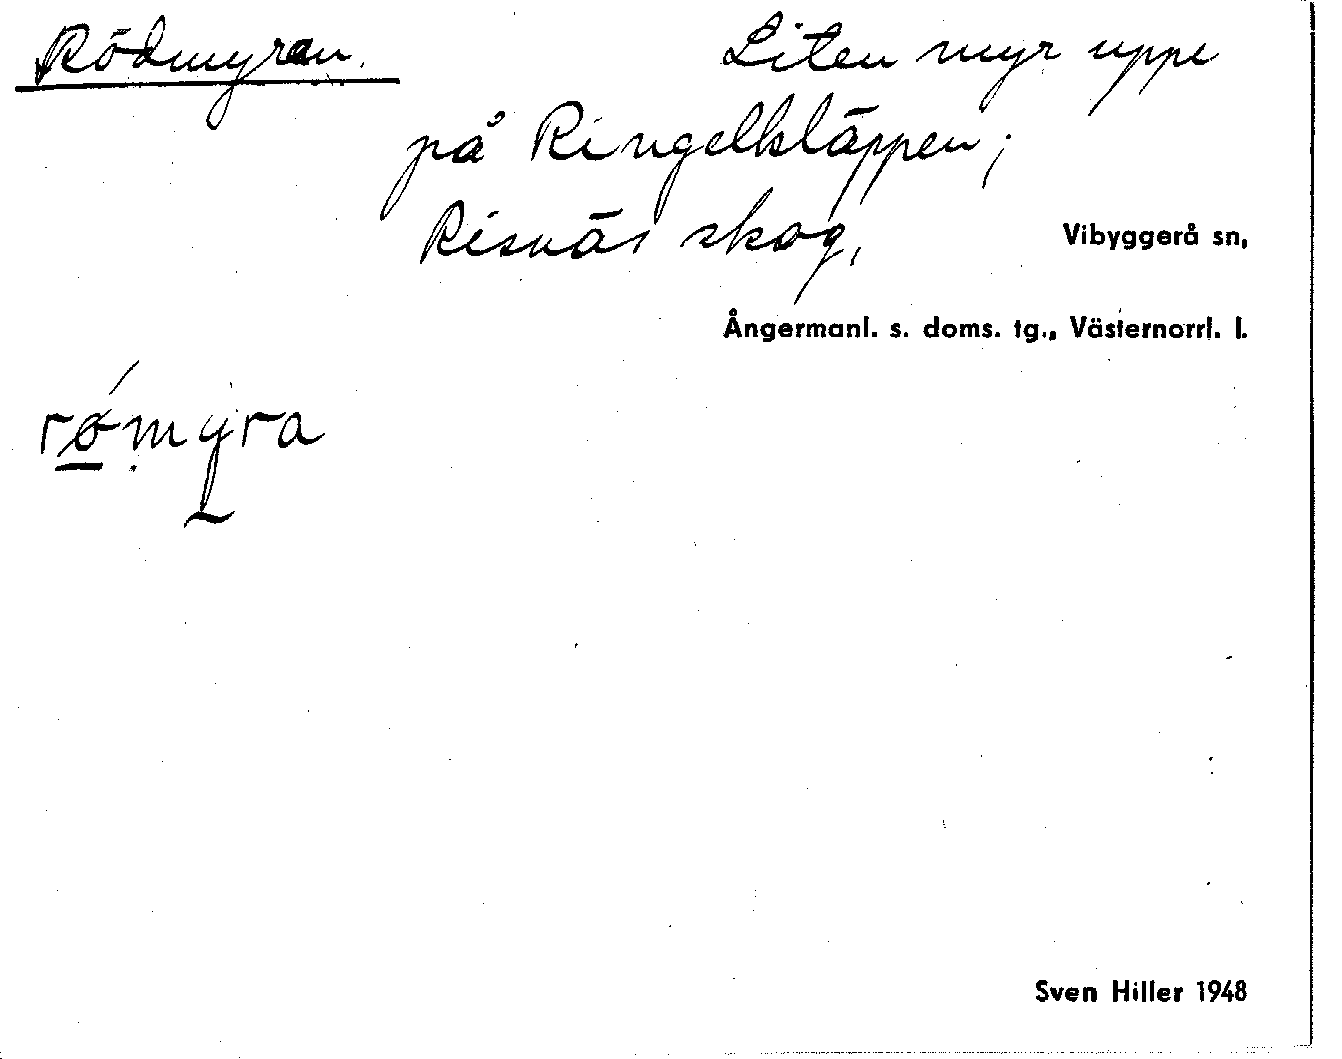 Rödmyran. Liten myr uppe
på Ringelkläppen;
Risnäs skog, Vibyggerå sn,
Ångermanl. s. doms. tg., Västernorrl. l.
rǿmyra
Sven Hiller 1948